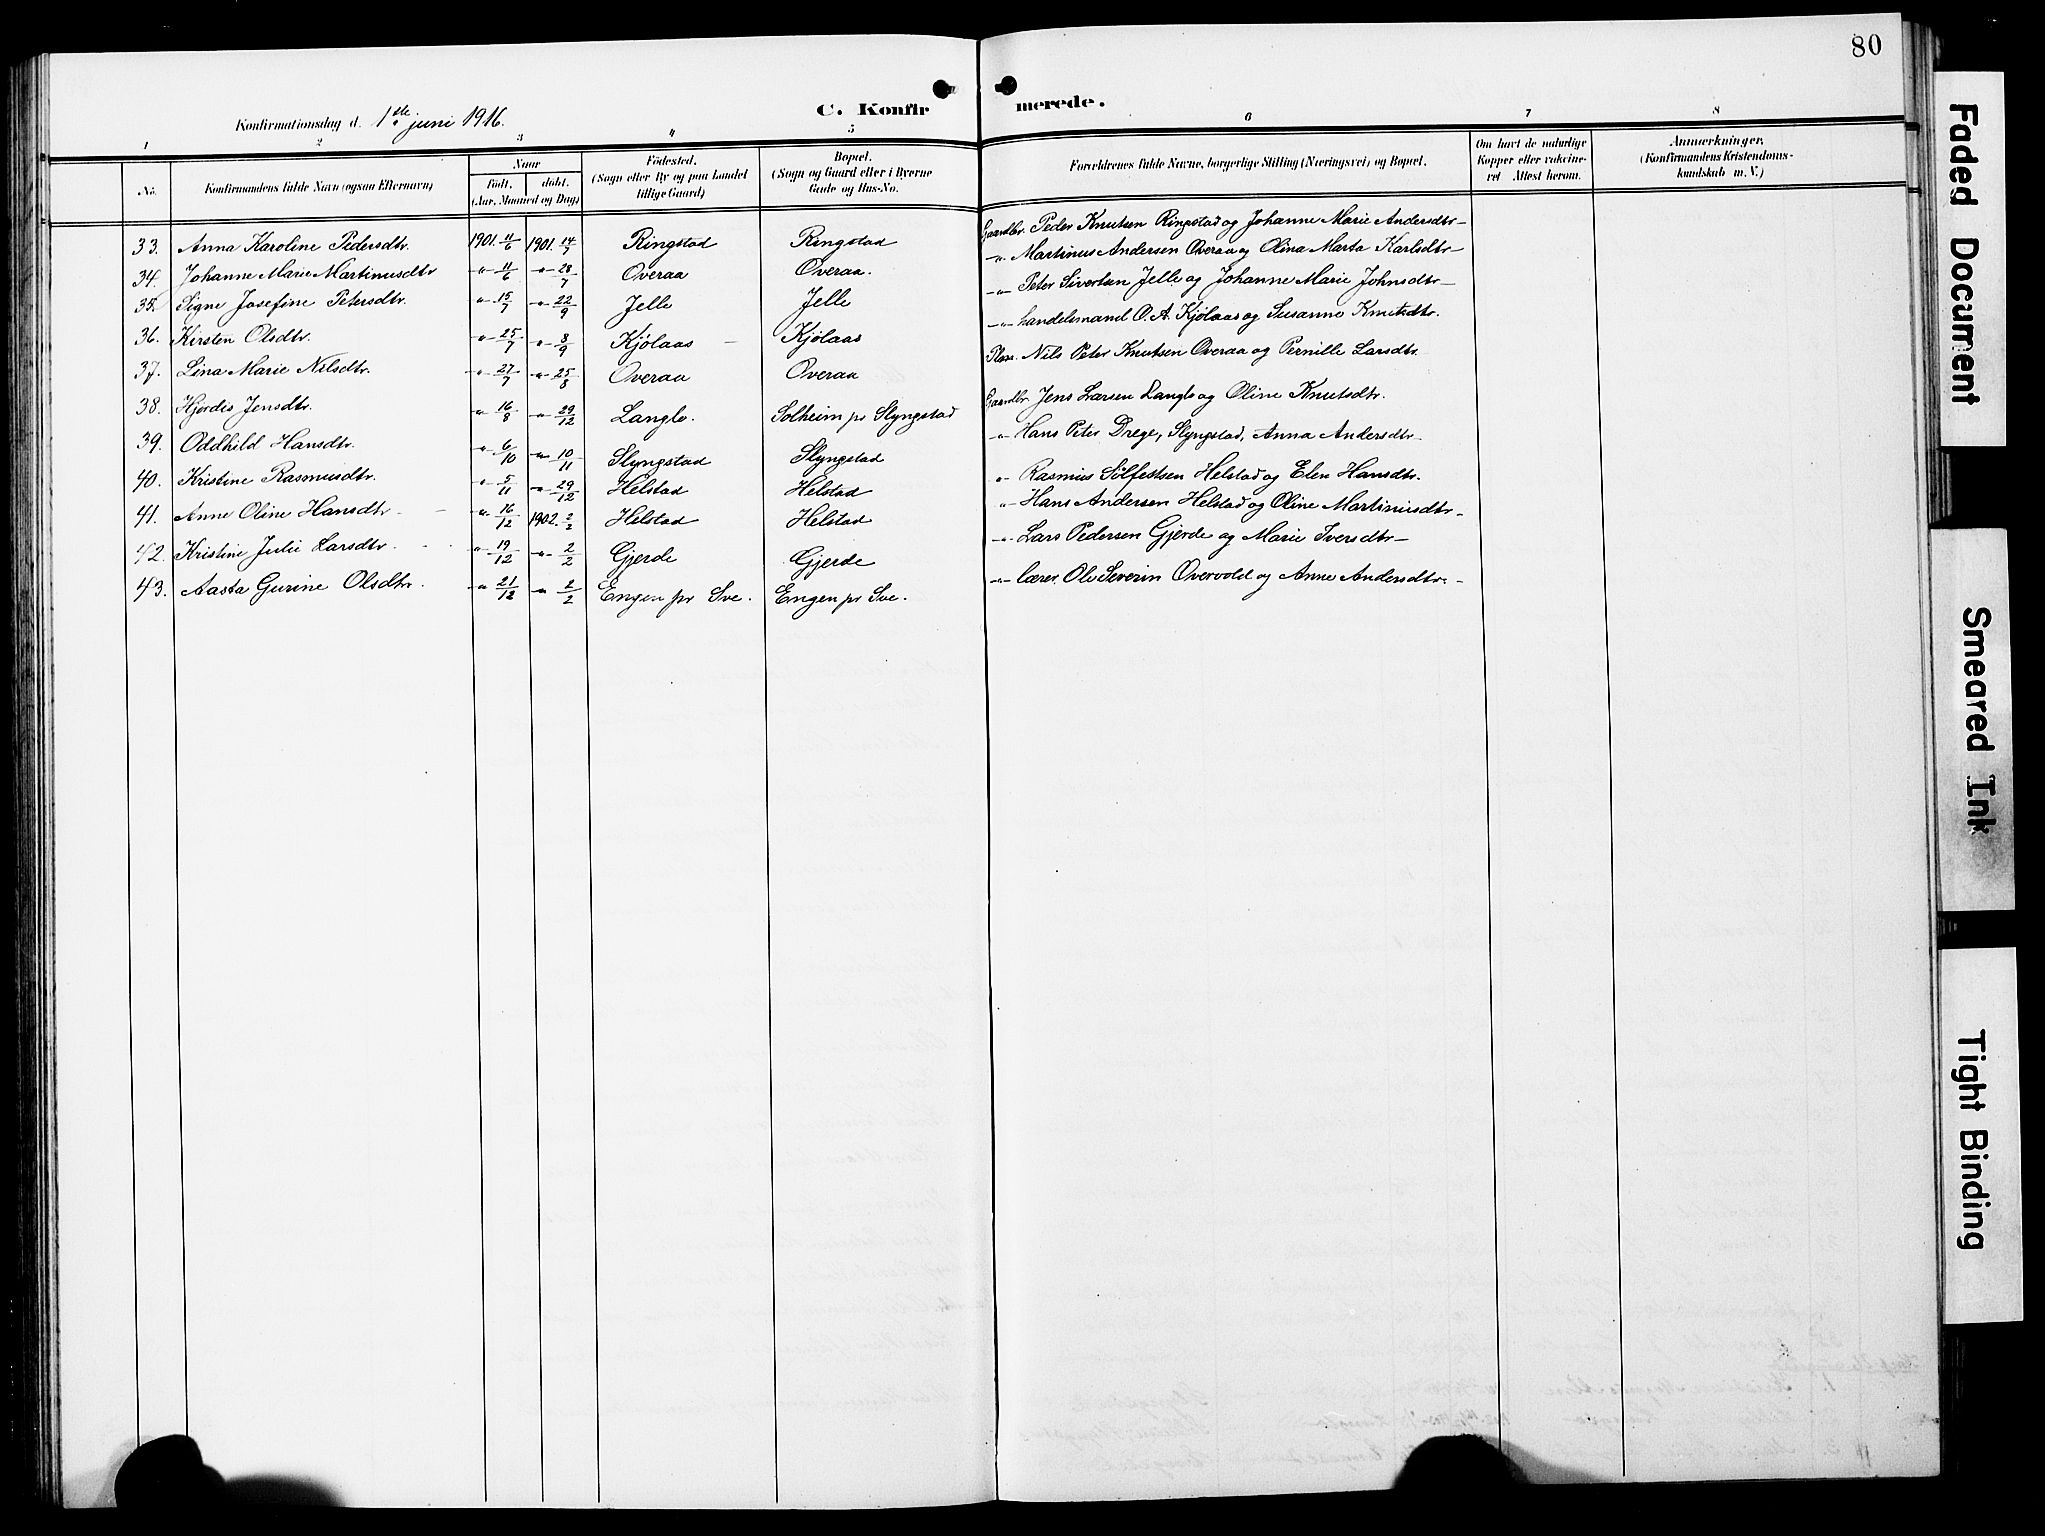 80
Konfirmationsdag d. 1ste juni 1916.
C. Konfirmerede.
1 2 3 4 5 6 7 8
No. Konfirmandens fulde Navn (ogsaa Efternavn) Naar født, døbt. (Aar, Maaned og Dag) Fødested. (Sogn eller By og paa Landet tillige Gaard) Bopæl. (Sogn og Gaard eller i Byerne Gade og Hus-No. Forældrenes fulde Navne, borgerlige Stilling (Næringsvei) og Bopæl. Om havt de naturlige Kopper eller vakcineret Attest herom. Anmærkninger, (Konfirmandens Kristendomskundskab m. V.)
33. Anna Karoline Pedersdtr. 1901. 11/6 1901. 14/7 Ringstad Ringstad Gaardbr. Peder Knutsen Ringstad og Johanne Marie Andersdtr —
34. Johanne Marie Martinusdtr -"- 11/6 -"- 28/7 Overaa Overaa. -"- Martinus Andersen Overaa og Olina Marta Karlsdtr —
35. Signe Josefine Petersdtr. -"- 15/7 -"- 22/9 Jelle Jelle -"- Peter Sivertsen Jelle og Johanne Marie Johnsdtr —
36. Kirsten Olsdtr. -"- 25/7 -"- 8/9 Kjölaas — Kjölaas -"- handelsmand O. A. Kjölaas og Susanne Knutsdtr.
37. Lina Marie Nilsdtr. -"- 27/7 -"- 25/8 Overaa Overaa Plass. Nils Peter Knutsen Overaa og Pernille Larsdtr.
38. Hjördis Jensdtr. -"- 16/8 -"- 29/12 Langlo. Solheim pr Slyngstad Gaardbr. Jens Larsen Langlo og Oline Knutsdtr.
39. Oddhild Hansdtr. -"- 6/10 -"- 10/11 Slyngstad Slyngstad -"- Hans Peter Drege, Slyngstad, Anna Andersdtr —
40. Kristine Rasmusdtr. -"- 5/11 -"- 29/12 Helstad Helstad -"- Rasmus Sölfestsen Helstad og Elen Hansdtr.
41. Anne Oline Hansdtr — -"- 16/12 1902. 2/2 Helstad Helstad -"- Hans Andersen Helstad og Oline Martinusdtr —
42. Kristine Julie Larsdtr. -"- 19/12 -"- 2/2 Gjerde Gjerde -"- Lars Pedersen Gjerde og Marie Iversdtr —
43. Aasta Gurine Olsdtr. -"- 21/12 -"- 2/2 Engen pr Sve. Engen pr Sve. -"- lærer Ole Severin Overvold og Anne Andersdtr. —
Faded Document
Smeared Ink
Tight Binding